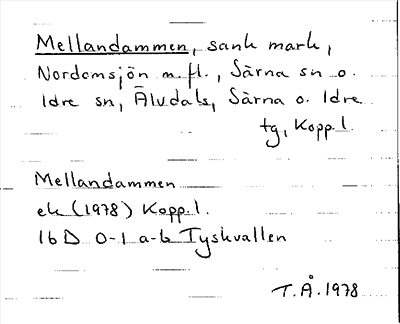 Mellandammen, sank mark,
Nordomsjön m.fl., Särna sn o.
Idre sn, Älvdals, Särna o. Idre
tg, Kopp.l.
Mellandammen
ek (1978) Kopp.l.
16D 0-1 a-b Tyskvallen
T.Å. 1978